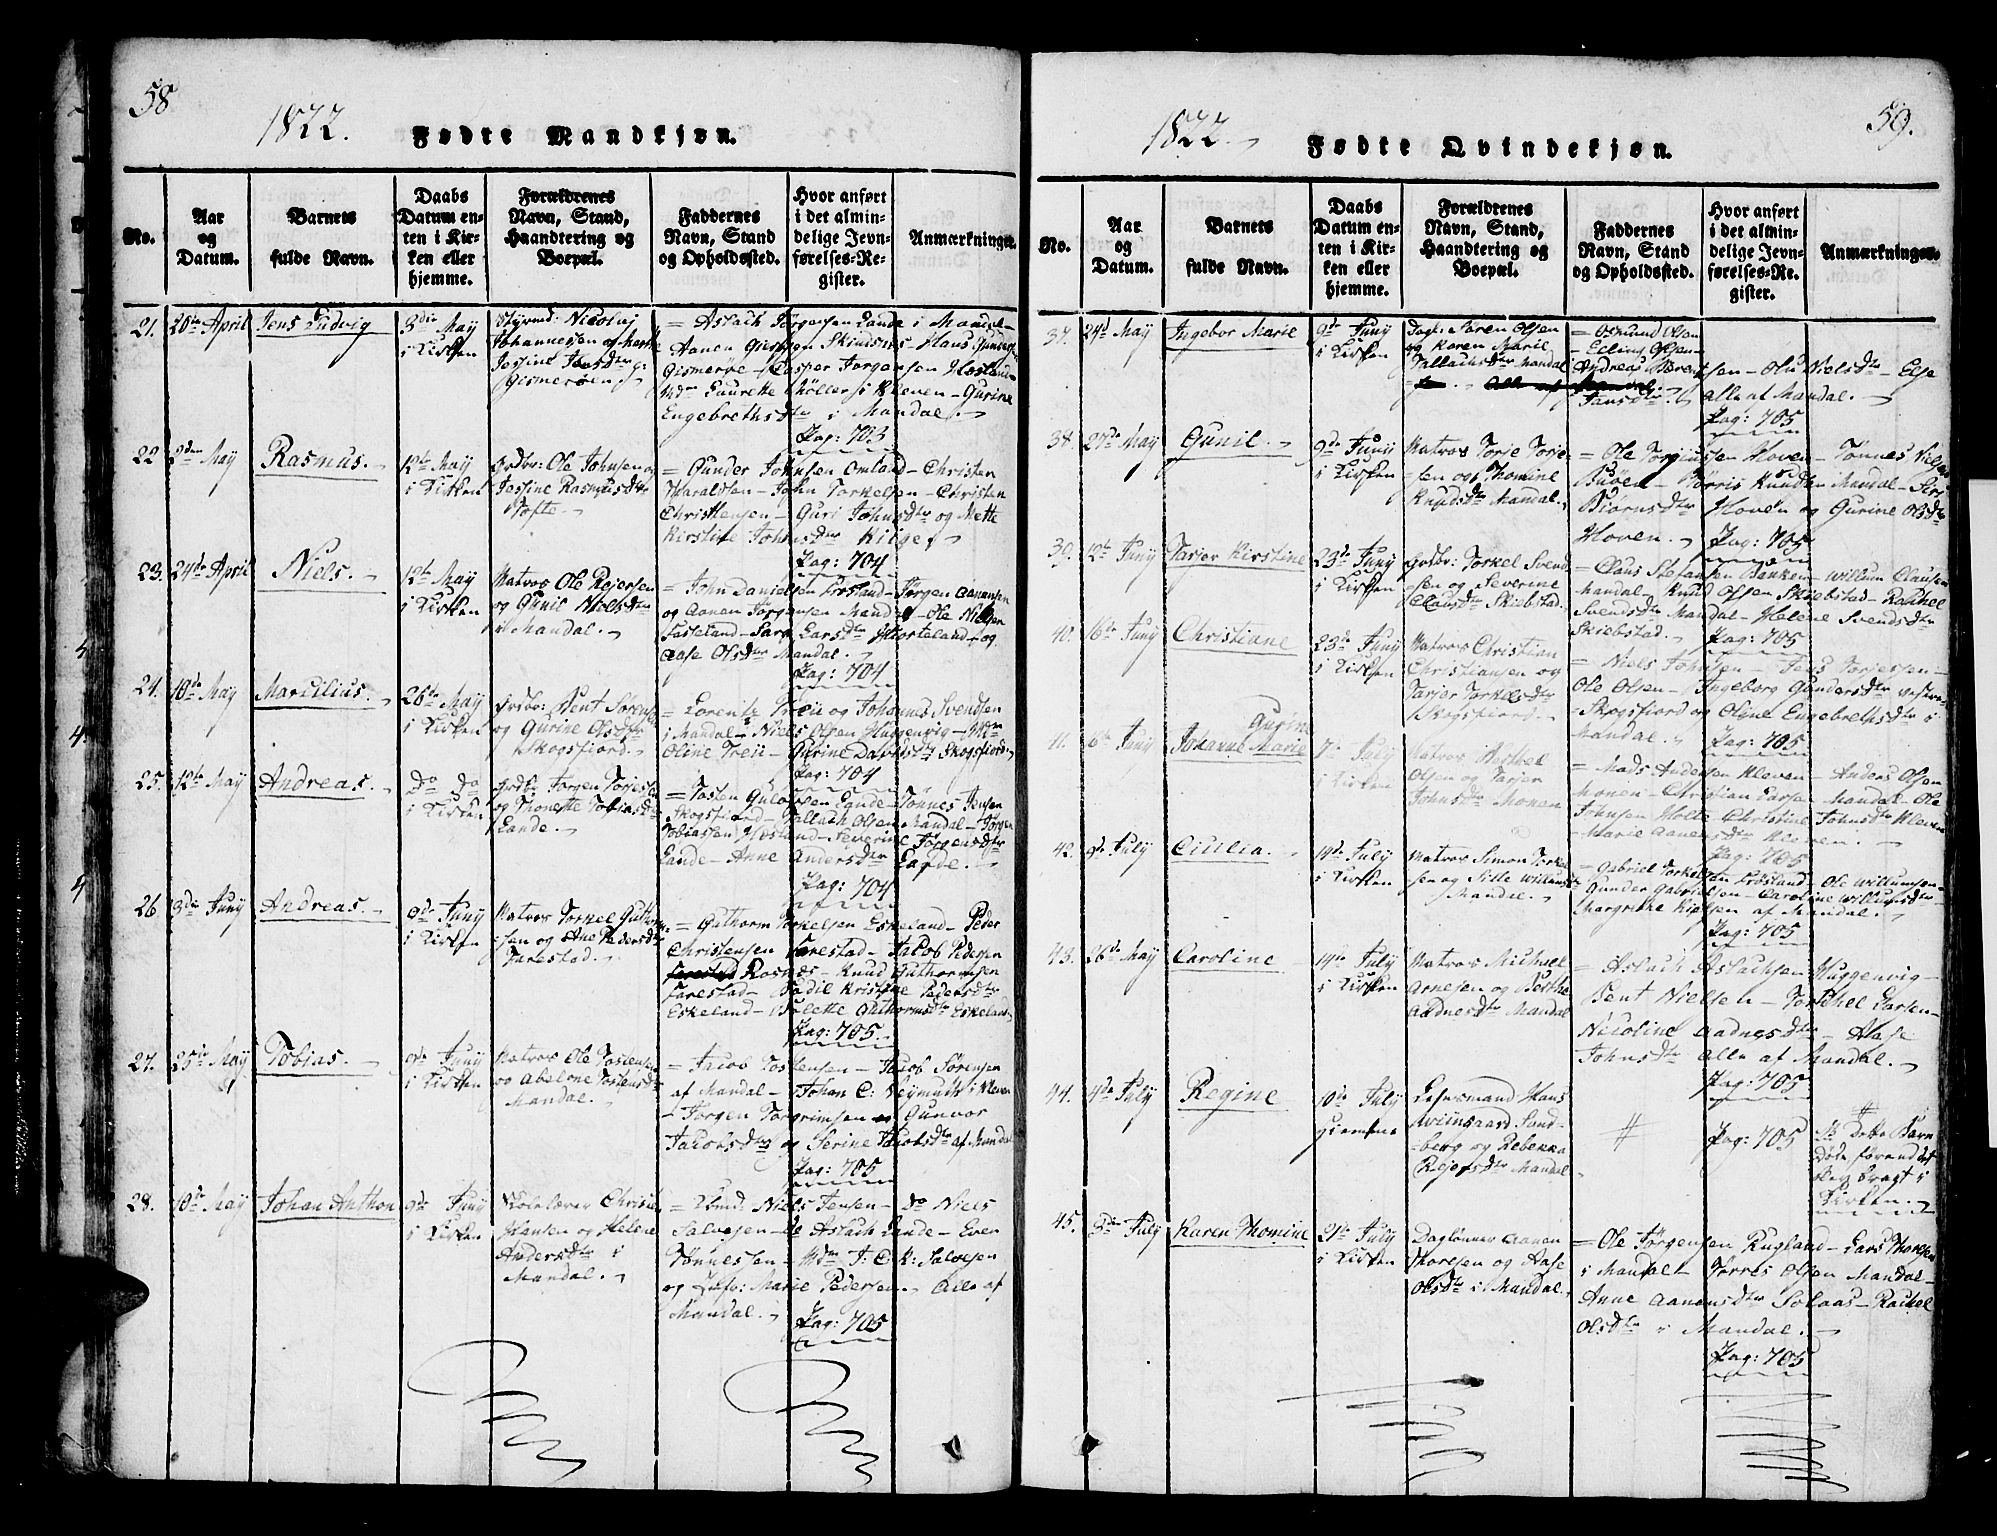 58
1822.
Fødte Mandkjøn.
No.
Aar
og
Datum.
Barnets
fulde Navn.
Daabs
Datum en-
ten i Kir-
ken eller
hjemme.
Forældrenes
Navn, Stand,
Haandtering og
Boepæl.
Faddernes
Navn, Stand
og Opholdssted.
Hvor anført
i det almin-
delige Jevn-
førelses-Re-
gister.
Anmærkninger.
21. 26de April Jens Ludvig
3die May
i Kirken
Nicolaj
Johannessen og
Gismerøen
= Aslach Jørgensen Lande i Mandal -
Gismerøe - Casper Jørgensen
Kleven - Gurine
Engebrethsdtr i Mandal.
Pag: 703
22 2den May Rasmus.
12te May
i Kirken
Ole Johnsen og
Jessine Rasmusdtr
Tofte.
= Gunder Johnsen Omland - Christen
Haraldsen - John Torkelsen - Christen
Christensen - Guri Johnsdtr og Mette
Kirstine Johnsdtr
Pag: 704
23. 24de April Niels.
12te May
i Kirken
Matros Ole Reiersen
og Gunil Nielsdtr
Mandal.
= John Danielsen Frøsland - Jørgen Aanensen
og Aanen Jørgensen Mandal - Ole Nielsen
Faseland - Sara Larsdtr - og
Aase Olsdtr Mandal.
Pag: 704
24. 10de May Marcilius.
26de May
i Kirken
Bent Sørensen
og Gurine Olsdtr
Skogsfiord.
= Lorentz Treu og Johannes Svendsen
i Mandal - Niels Olsen Huggenvig -
Oline Treu - Gurine Davidsdtr Skogsfiord.
Pag: 704
25. 12te May Andreas.
Do Do
i Kirken
Jørgen Torjesen
og Thonette Tobiasdtr
Lande.
= Tosten Lande - Tønnes Jensen
Skogsfiord - Tallach Olsen Mandal - Jørgen
Tobiassen - Severine Jørgensdtr
Lande - Anne Andersdtr Lande.
Pag: 704
26 3die Juny Andreas.
9de Juny
i Kirken
Matros Torkel Guthorm-
sen og Ane Pedersdtr
Farestad.
= Guthorm Torkelsen Eskeland - Peder
Christensen Farestad - Jacob Pedersen
Rosnes - Knud Guthormsen
Farestad - Bodil Kristine Pedersdtr
Eskeland - Guthormsdtr Eskeland
Pag: 705.
27. 25de May Tobias.
9de Juny
i Kirken
Matros Ole Tostensen
og Abelone Tostensdtr
Mandal.
= Jacob Tostensen - Jacob Sørensen
af Mandal - Johan C: Weymuth i Kleven
- Jørgen Torgrimsen Gunvor
Jacobsdtr og Serine Jacobsdtr af Mandal
Pag: 705
28. 10de May Johan Anthon
9de Juny
i Kirken
Skolelærer Christen
Hansen og Helene
Andersdtr i
Mandal.
= Niels Jensen - Do Niels
Salvesen - Do Aslach Lande - Even
Tønnessen - J: C: K: Salvesen
og Marie Pedersen. Alle af
Mandal.
Pag: 705
59.
1822.
Fødte Qvindekjøn.
No.
Aar
og
Datum.
Barnets
fulde Navn.
Daabs
Datum en-
ten i Kir-
ken eller
hjemme.
Forældrenes
Navn, Stand,
Haandtering og
Boepæl.
Faddernes
Navn, Stand
og Opholdssted.
Hvor anført
i det almin-
delige Jevn-
førelses-Re-
gister.
Anmærkninger.
37. 24de May Ingebor Marie
9de Juny
i Kirken
Søren Olsen
og Karen Marie
Tallachsdtr Mandal
= Osmund Olsen
- Elling Olsen -
Andreas Børentsen - Nielsdtr - Else
Jansdtr alle af Mandal.
Pag: 705
38. 27de May Gunil.
9de Juny
i Kirken
Matros Torje Torje-
sen og Thomine
Knudsdtr Mandal.
= Ole Torjussen Hoven - Tønnes Nielsen
Buøen - Børris Knudsen Mandal - Siri
Biørnsdtr Hoven og Gurine Olsdtr
Hoven.
Pag: 705
39. 12te Juny Tarjer Kirstine
23de Juny
i Kirken
Torkel Svend
sen og Severine
Clausdtr Skiebstad.
= Claus Stefansen Banken - Willum Clausen
Mandal - Knud Olsen Skiebstad - Rachel
Svendsdtr Mandal - Helene Svendsdtr
Skiebstad.
Pag: 705
40. 16de Juny Christiane
23de Juny
i Kirken
Matros Christian
Christiansen og
Tarjer Torkelsdtr
Skogsfiord.
= Niels Johnsen - Jens Torjessen -
Ole Olsen - Ingeborg Gundersdtr
Skogsfiord og Oline Engebrethsdtr i
Mandal
Pag: 705
41. 6te Juny Johanne Marie
Gurine
7de July
i Kirken
Matros Berthel
Olsen og Tarjer
Johnsdtr Monen
= Mads Andersen Kleven - Anders Olsen
Monen - Christian Larsen Mandal - Ole
Johnsen Holte - Christine Johnsdtr Kleven
- Marie Aanensdtr Kleven.
Pag: 705
42. 9de July Cicilia.
14de July
i Kirken
Matros Simon Torkel
sen og Sille Willumsdtr
Mandal.
= Gabriel Torkelsen Frøsland - Ole Willumsen -
Gunder Gabrielsen - Caroline Willumsdtr -
Margrethe af Mandal.
Pag: 705
43. 26de May Caroline
14de July
i Kirken
Matros Michael
Arnesen og Berthe
Aadnesdtr Mandal
= Aslach Aslachsen Huggenvig -
Bent Nielsen - Torchel Larsen -
Nicoline Aadnesdtr - Aase
Johnsdtr alle af Mandal.
Pag: 705
44. 4de July Regine
10de July
hiemme
Hans
Sand-
berg og Rebekka
Mandal
#
Pag: 705
#
Dette Barn
Døde førend det
blev bragt i
Kirken.
45. 3die July Karen Thomine
21de July
i Kirken
Dagløner Aanen
Thoresen og Aase
Olsdtr i Mandal.
= Ole Jørgensen Rugland - Lars Thoresen
i Mandal - Børres Olsen Mandal -
Anne Aanensdtr Solaas - Rachel
Olsdtr i Mandal.
Pag: 705